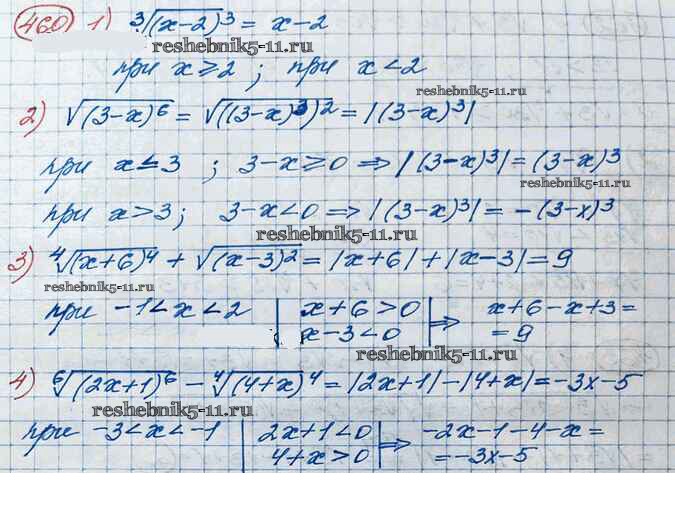 460 1) ∛(x-2)³ = x-2
reshebnik5-11.ru
при x ≥ 2 ; при x < 2
reshebnik5-11.ru
2) √(3-x)⁶ = √((3-x)³)² = |(3-x)³|
при x ≤ 3 ; 3-x ≥ 0 ⇒ |(3-x)³| = (3-x)³
reshebnik5-11.ru
при x > 3; 3-x < 0 ⇒ |(3-x)³| = -(3-x)³
reshebnik5-11.ru
3) ⁴√(x+6)⁴ + √(x-3)² = |x+6| + |x-3| = 9
reshebnik5-11.ru
при -1 < x < 2 | x+6 > 0 | ⇒ x+6-x+3 =
| x-3 < 0 | = 9
reshebnik5-11.ru
4) ⁶√(2x+1)⁶ - ⁴√(4+x)⁴ = |2x+1| - |4+x| = -3x-5
reshebnik5-11.ru
при -3 < x < -1 | 2x+1 < 0 | ⇒ -2x-1-4-x =
| 4+x > 0 | = -3x-5
reshebnik5-11.ru